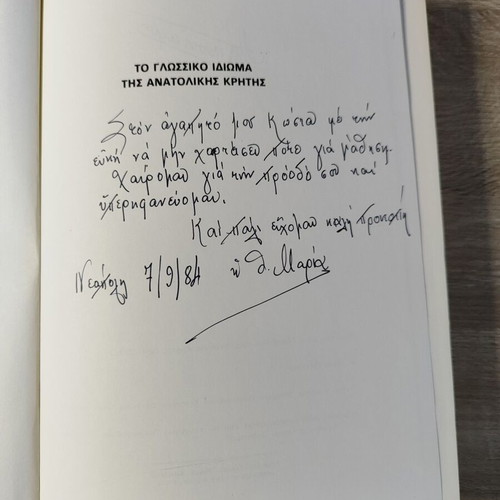 ΤΟ ΓΛΩΣΣΙΚΟ ΙΔΙΩΜΑ
ΤΗΣ ΑΝΑΤΟΛΙΚΗΣ ΚΡΗΤΗΣ
Στόν ἀγαπητό μου Κώστα μέ τήν
εὐχή νά μήν χορτάσει ποτέ γιά μάθηση.
Χαίρομαι γιά τήν πρόοδό σου καί
ὑπερηφανεύομαι.
Καί πάλι εὔχομαι καλή προκοπή
Νεάπολη 7/9/84 ἡ θ. Μαρία